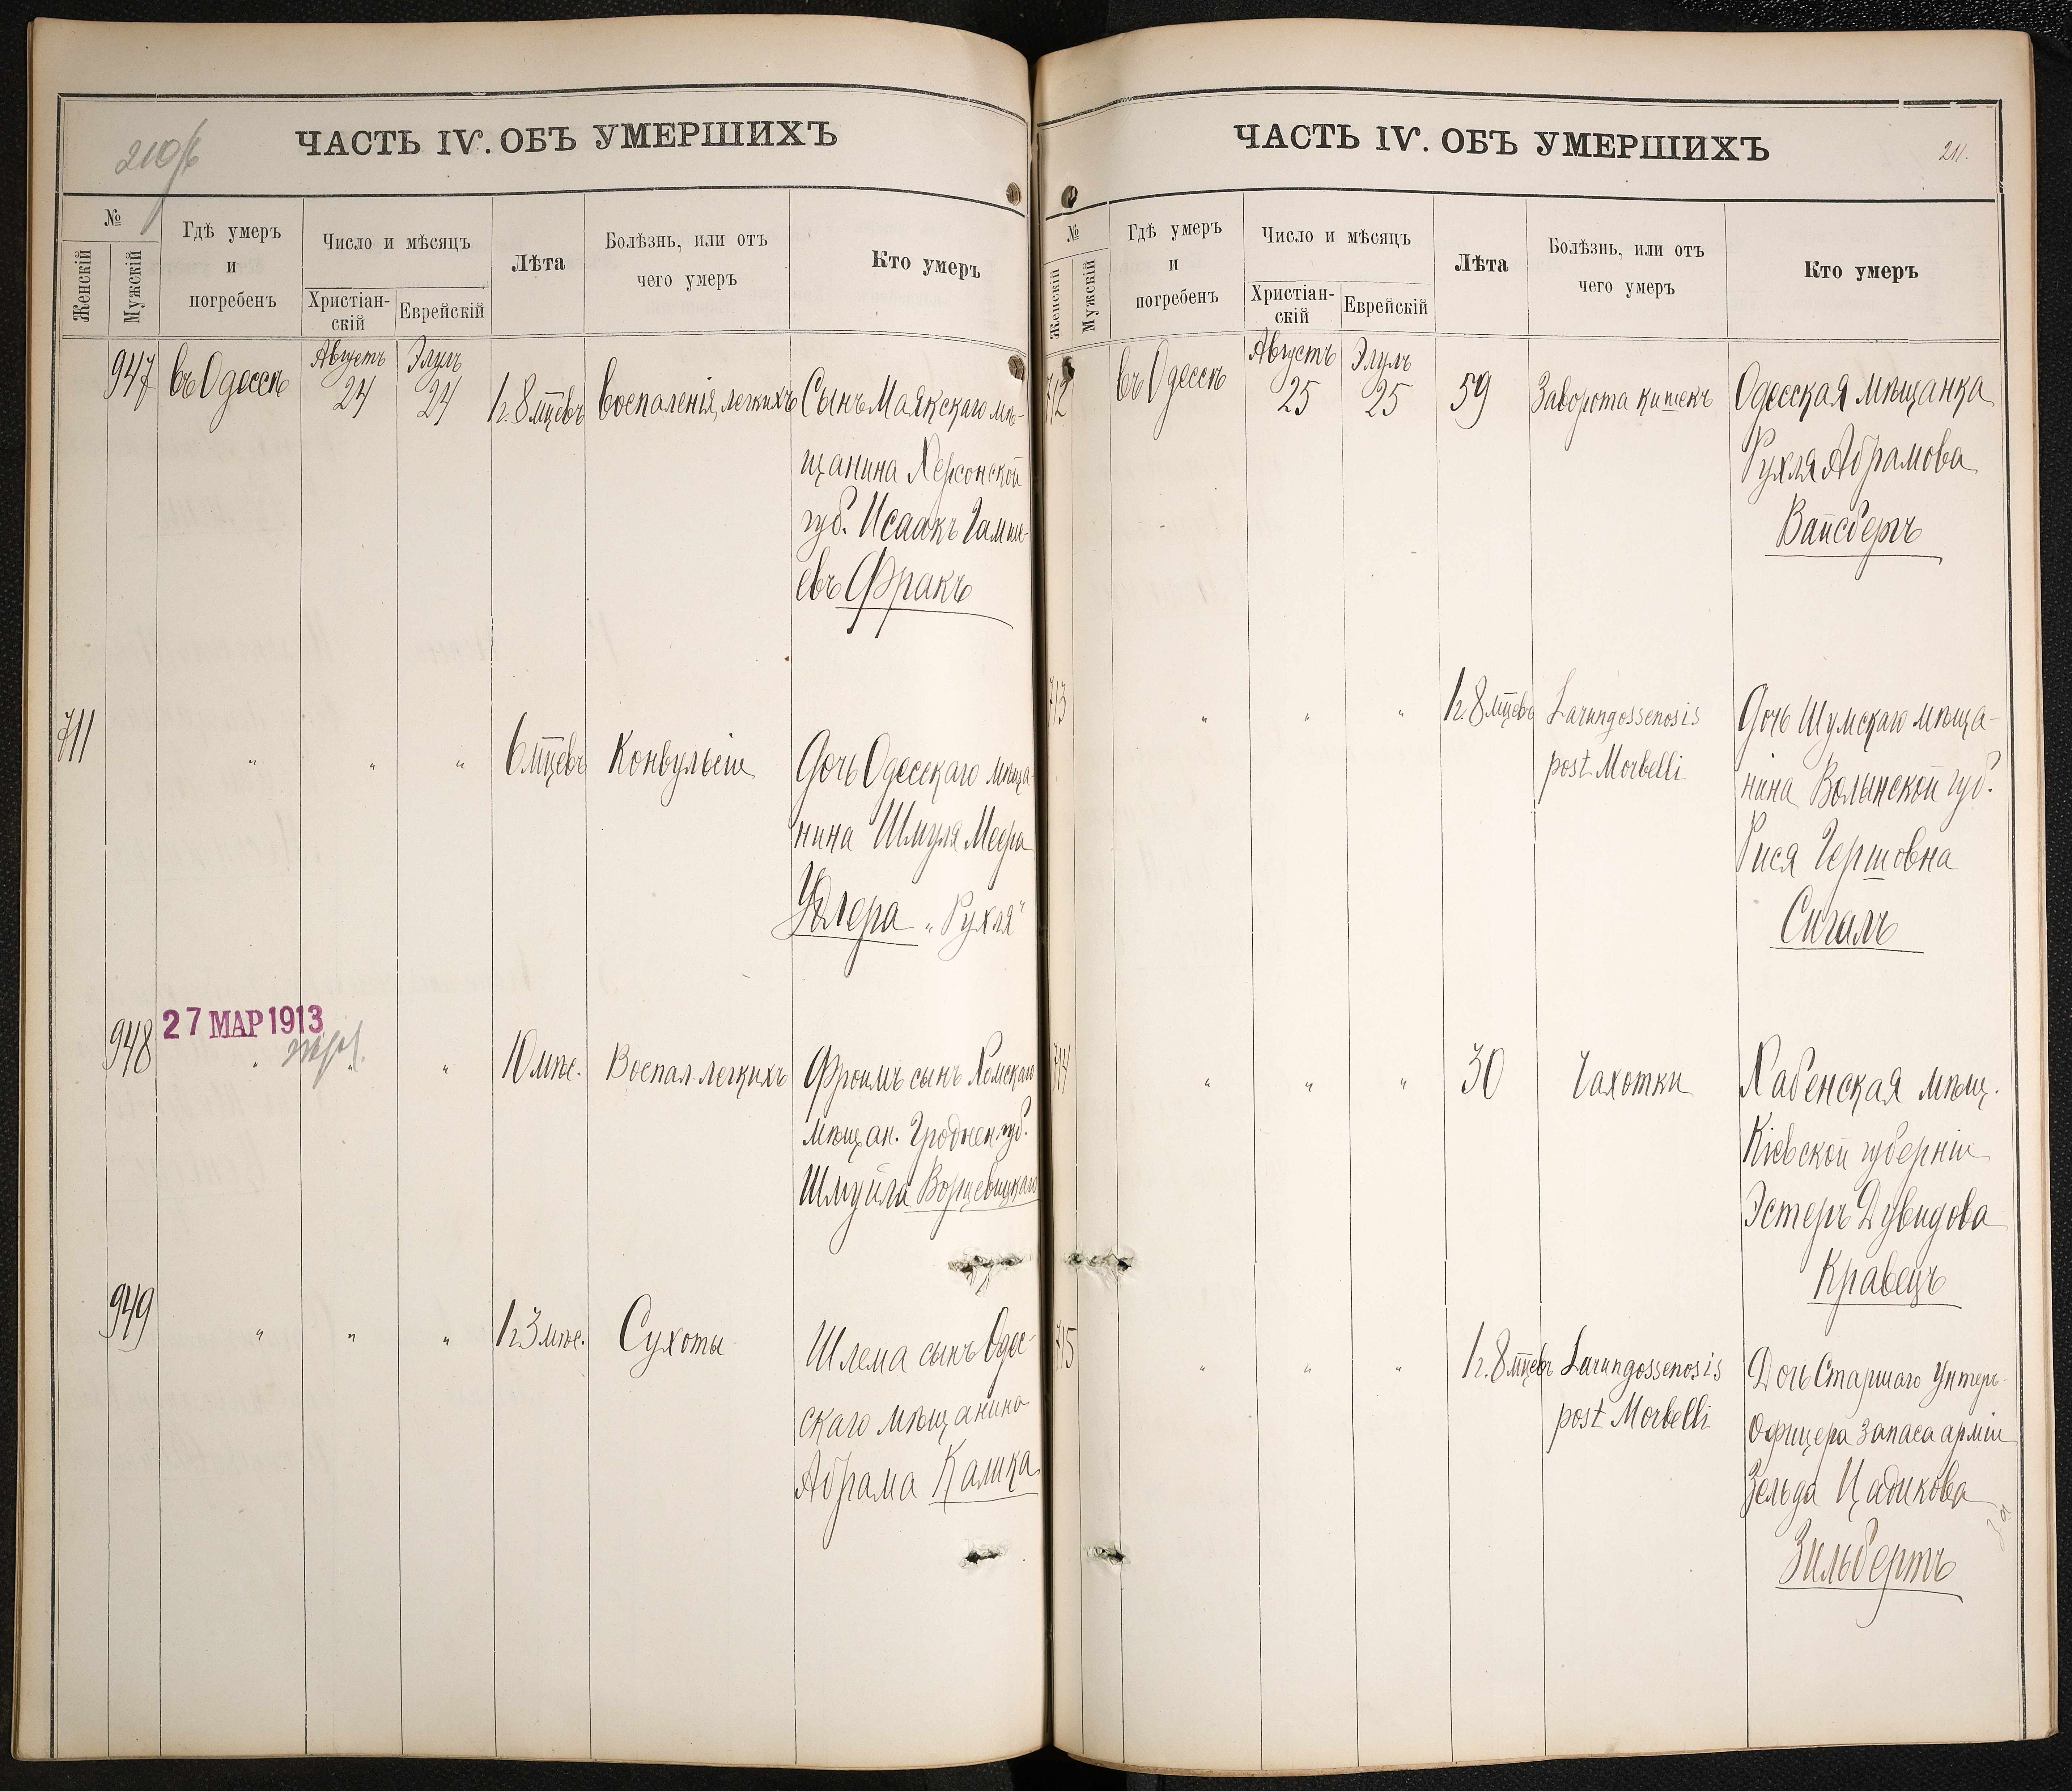 210/б
ЧАСТЬ IV. ОБЪ УМЕРШИХЪ
№
Женскій
Мужскій
Гдѣ умеръ
и
погребенъ
Число и мѣсяцъ
Христіан-
скій
Еврейскій
Лѣта
Болѣзнь, или отъ
чего умеръ
Кто умеръ
947
въ Одессѣ
Августъ
24
Элулъ
24
1 г. 8 мцевъ
воспаленія легкихъ
Сынъ Маякскаго мѣ-
щанина Херсонской
губ. Исаакъ
евъ Фракъ
711
"
"
"
6 мцевъ
Конвульсіи
Дочь Одесскаго мѣща-
нина Шмуля Меера
Удлера „Рухля"
948
27 МАР 1913
"
"
10 мѣс.
Воспал. легкихъ
Фроимъ сынъ Хомскаго
мѣщан. Гроднен. губ.
Шмуйла Ворцевицкаго
949
"
"
"
1 г 3 мѣс.
Сухоты
Шлема сынъ Одес-
скаго мѣщанина
Абрама Калика
ЧАСТЬ IV. ОБЪ УМЕРШИХЪ
211.
№
Женскій
Мужскій
Гдѣ умеръ
и
погребенъ
Число и мѣсяцъ
Христіан-
скій
Еврейскій
Лѣта
Болѣзнь, или отъ
чего умеръ
Кто умеръ
712
въ Одессѣ
Августъ
25
Элулъ
25
59
Заворота кишекъ
Одесская мѣщанка
Рухля Абрамова
Вайсбергъ
713
"
"
"
1 г. 8 мцевъ
Larungossenosis
post Morbelli
Дочь Шумскаго мѣща-
нина Волынской губ.
Рися Гершовна
Сигалъ
714
"
"
"
30
Чахотки
Хабенская мѣщ.
Кіевской губерніи
Эстеръ Дувидова
Кравецъ
715
"
"
"
1 г. 8 мцевъ
Larungossenosis
post Morbelli
Дочь Старшаго Унтеръ-
Офицера запаса арміи
Зельда Цадикова
Зильбертъ